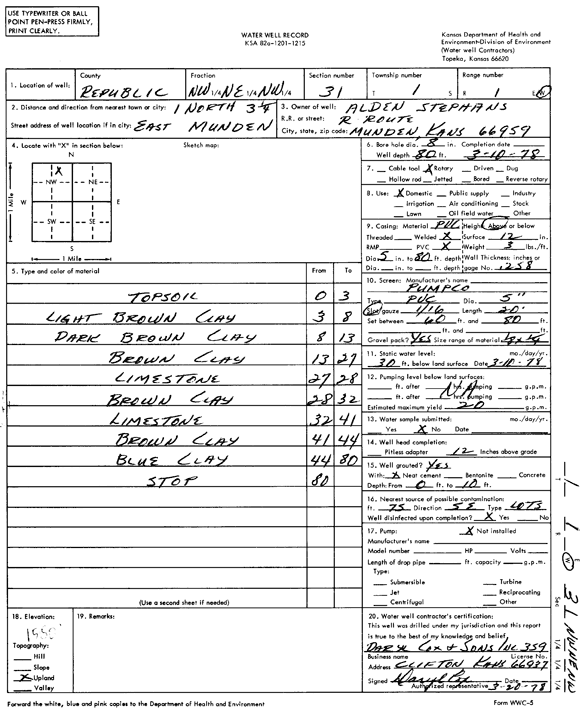 USE TYPEWRITER OR BALL
POINT PEN-PRESS FIRMLY,
PRINT CLEARLY.
WATER WELL RECORD
KSA 82a-1201-1215
Kansas Department of Health and
Environment-Division of Environment
(Water well Contractors)
Topeka, Kansas 66620
1. Location of well: County REPUBLIC Fraction NW 1/4 NE 1/4 NW 1/4 Section number 31 Township number T 1 S Range number R 1 E/W
2. Distance and direction from nearest town or city: 1 NORTH 3 1/4
Street address of well location if in city: EAST MUNDEN
3. Owner of well: ALDEN STEPHANS
R.R. or street: R ROUTE
City, state, zip code: MUNDEN, KANS 66959
4. Locate with "X" in section below: Sketch map:
N
X
NW NE
W E
SW SE
S
1 Mile
1 Mile
5. Type and color of material From To
TOPSOIL 0 3
LIGHT BROWN CLAY 3 8
DARK BROWN CLAY 8 13
BROWN CLAY 13 27
LIMESTONE 27 28
BROWN CLAY 28 32
LIMESTONE 32 41
BROWN CLAY 41 44
BLUE CLAY 44 80
STOP 80
(Use a second sheet if needed)
6. Bore hole dia. 8 in. Completion date
Well depth 80 ft. 3-10-78
7. Cable tool X Rotary Driven Dug
Hollow rod Jetted Bored Reverse rotary
8. Use: X Domestic Public supply Industry
Irrigation Air conditioning Stock
Lawn Oil field water Other
9. Casing: Material PVC Height: Above or below
Threaded Welded X Surface 12 in.
RMP PVC X Weight 3 lbs./ft.
Dia. 5 in. to 80 ft. depth Wall Thickness: inches or
Dia. in. to ft. depth gage No. .258
10. Screen: Manufacturer's name
PUMPCO
Type PVC Dia. 5"
Slot/gauze 1/16 Length 20'
Set between 60 ft. and 80 ft.
ft. and ft.
Gravel pack? YES Size range of material
11. Static water level: mo./day/yr.
30 ft. below land surface Date 3-10-78
12. Pumping level below land surface:
ft. after hrs. pumping g.p.m.
ft. after hrs. pumping g.p.m.
Estimated maximum yield 20 g.p.m.
13. Water sample submitted: mo./day/yr.
Yes X No Date
14. Well head completion:
Pitless adapter 12 Inches above grade
15. Well grouted? YES
With: X Neat cement Bentonite Concrete
Depth: From 0 ft. to 10 ft.
16. Nearest source of possible contamination:
ft. 75 Direction SE Type LOTS
Well disinfected upon completion? X Yes No
17. Pump: X Not installed
Manufacturer's name
Model number HP Volts
Length of drop pipe ft. capacity g.p.m.
Type:
Submersible Turbine
Jet Reciprocating
Centrifugal Other
18. Elevation:
Topography:
Hill
Slope
X Upland
Valley
19. Remarks:
20. Water well contractor's certification:
This well was drilled under my jurisdiction and this report
is true to the best of my knowledge and belief.
DARYL COX & SONS INC 359
Business name License No.
Address CLIFTON KANS 66937
Signed Daryl Cox Date 3-20-78
Authorized representative
Forward the white, blue and pink copies to the Department of Health and Environment
Form WWC-5